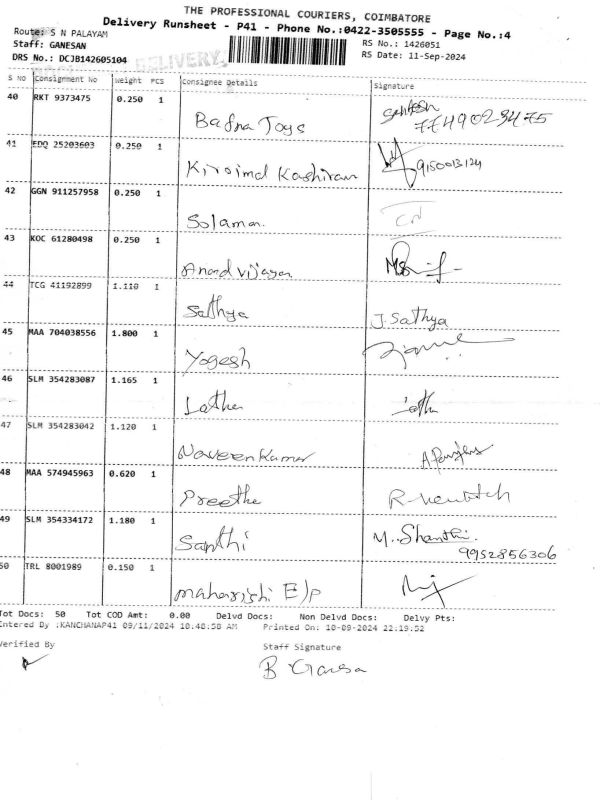 THE PROFESSIONAL COURIERS, COIMBATORE
Delivery Runsheet - P41 - Phone No.:0422-3505555 - Page No.:4
Route: S N PALAYAM
Staff: GANESAN RS No.: 1426051
DRS No.: DCJB142605104 DELIVERY. RS Date: 11-Sep-2024
S NO Consignment No Weight PCS Consignee Details Signature
40 RKT 9373475 0.250 1 Bafna Toys Santosh 7749029475
41 EDQ 25203603 0.250 1 Kiroimal Kashiram 9150013124
42 GGN 911257958 0.250 1 Solaman CN
43 KOC 61280498 0.250 1 Anand vijayan
44 TCG 41192899 1.110 1 Sathya J. Sathya
45 MAA 704038556 1.800 1 Yogesh
46 SLM 354283087 1.165 1 Latha Latha
47 SLM 354283042 1.120 1 Naveen Kumar
48 MAA 574945963 0.620 1 Preetha
49 SLM 354334172 1.180 1 Santhi M. Shanthi. 9952856306
50 TRL 8001989 0.150 1 maharishi E/P
Tot Docs: 50 Tot COD Amt: 0.00 Delvd Docs: Non Delvd Docs: Delvy Pts:
Entered By :KANCHANAP41 09/11/2024 10:48:58 AM Printed On: 10-09-2024 22:19:52
Verified By Staff Signature
B Ganesa